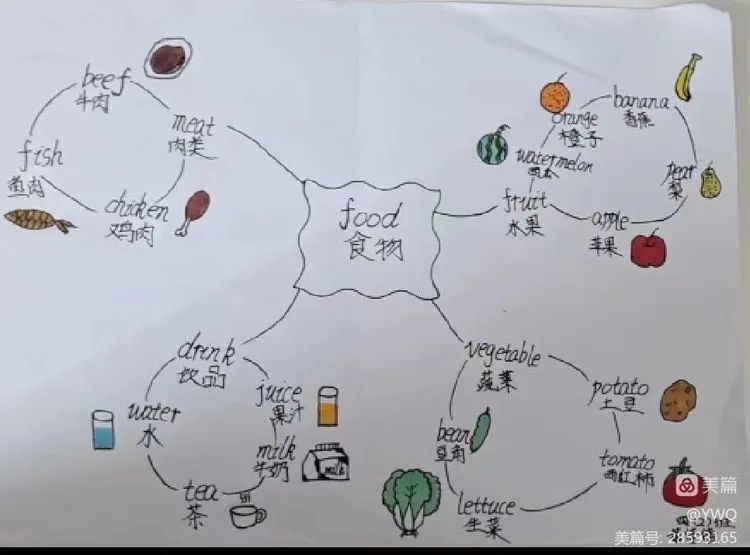 food
食物
meat
肉类
beef
牛肉
fish
鱼肉
chicken
鸡肉
fruit
水果
watermelon
西瓜
orange
橙子
banana
香蕉
pear
梨
apple
苹果
drink
饮品
juice
果汁
milk
牛奶
milk
tea
茶
water
水
vegetable
蔬菜
potato
土豆
tomato
西红柿
lettuce
生菜
bean
豆角
美篇
@YWQ
美篇号: 28593165
四(2)班